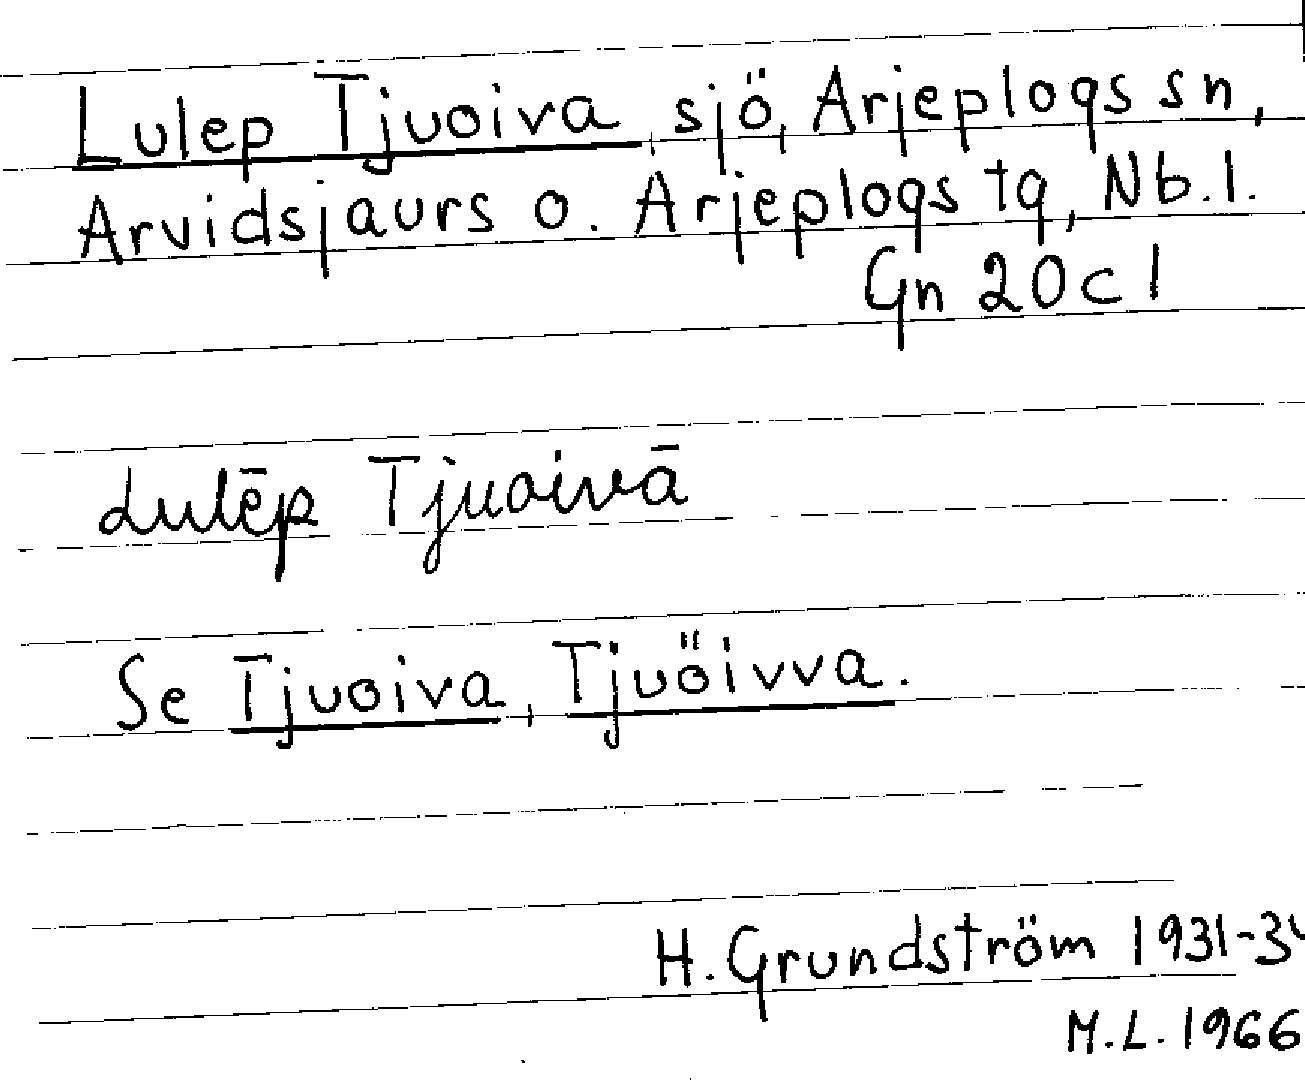 Lulep Tjuoiva, sjö, Arjeplogs sn,
Arvidsjaurs o. Arjeplogs tg, Nb.l.
Gn 20 c l
Lulēp Tjuoivā
Se Tjuoiva, Tjuöivva.
H. Grundström 1931-34
M.L. 1966